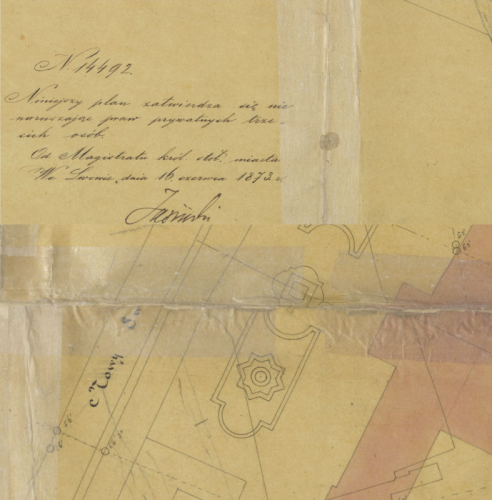 N. 14492.
Niniejszy plan zatwierdza się nie
naruszając praw prywatnych trze-
cich osób.
Od Magistratu król. stoł. miasta
We Lwowie, dnia 16 czerwca 1873 r.